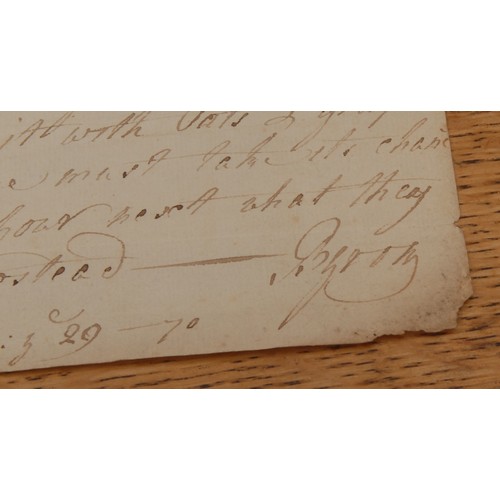 with Oats &
must take its chan
hour next what they
stead — Byron
: yᵉ 29 — 70